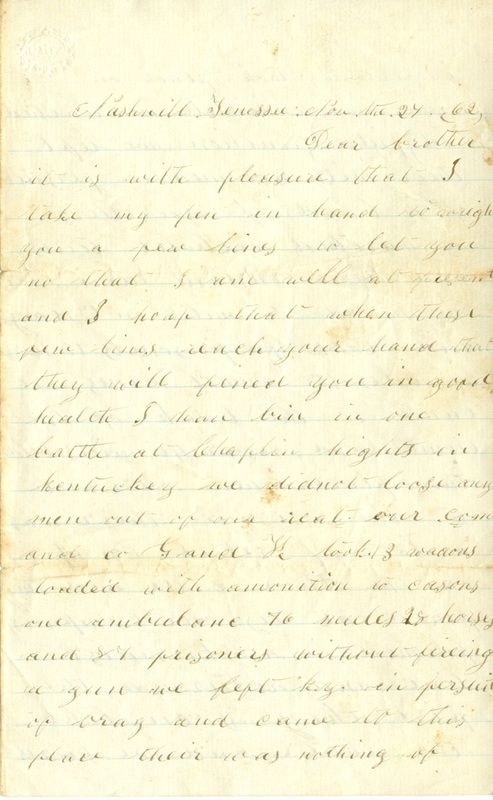 Nashvill Tenessee Nov the 27 /62,
Dear brother
it is with pleasure that I
take my pen in hand to wrigh
you a few lines to let you
no that I am well at present
and I hoap that when these
few lines reach your hand that
they will fined you in good
health I have bin in one
battle at Chaplin hights in
Kentuckey we didnot loose any
men out of our reat. our com
and co G and K took 13 wagons
loaded with amonition to casons
one ambulanc 76 mules 28 horses
and 87 prizoners without fireing
a gun we left Ky. in persuit
of brag and came to this
place their was nothing of